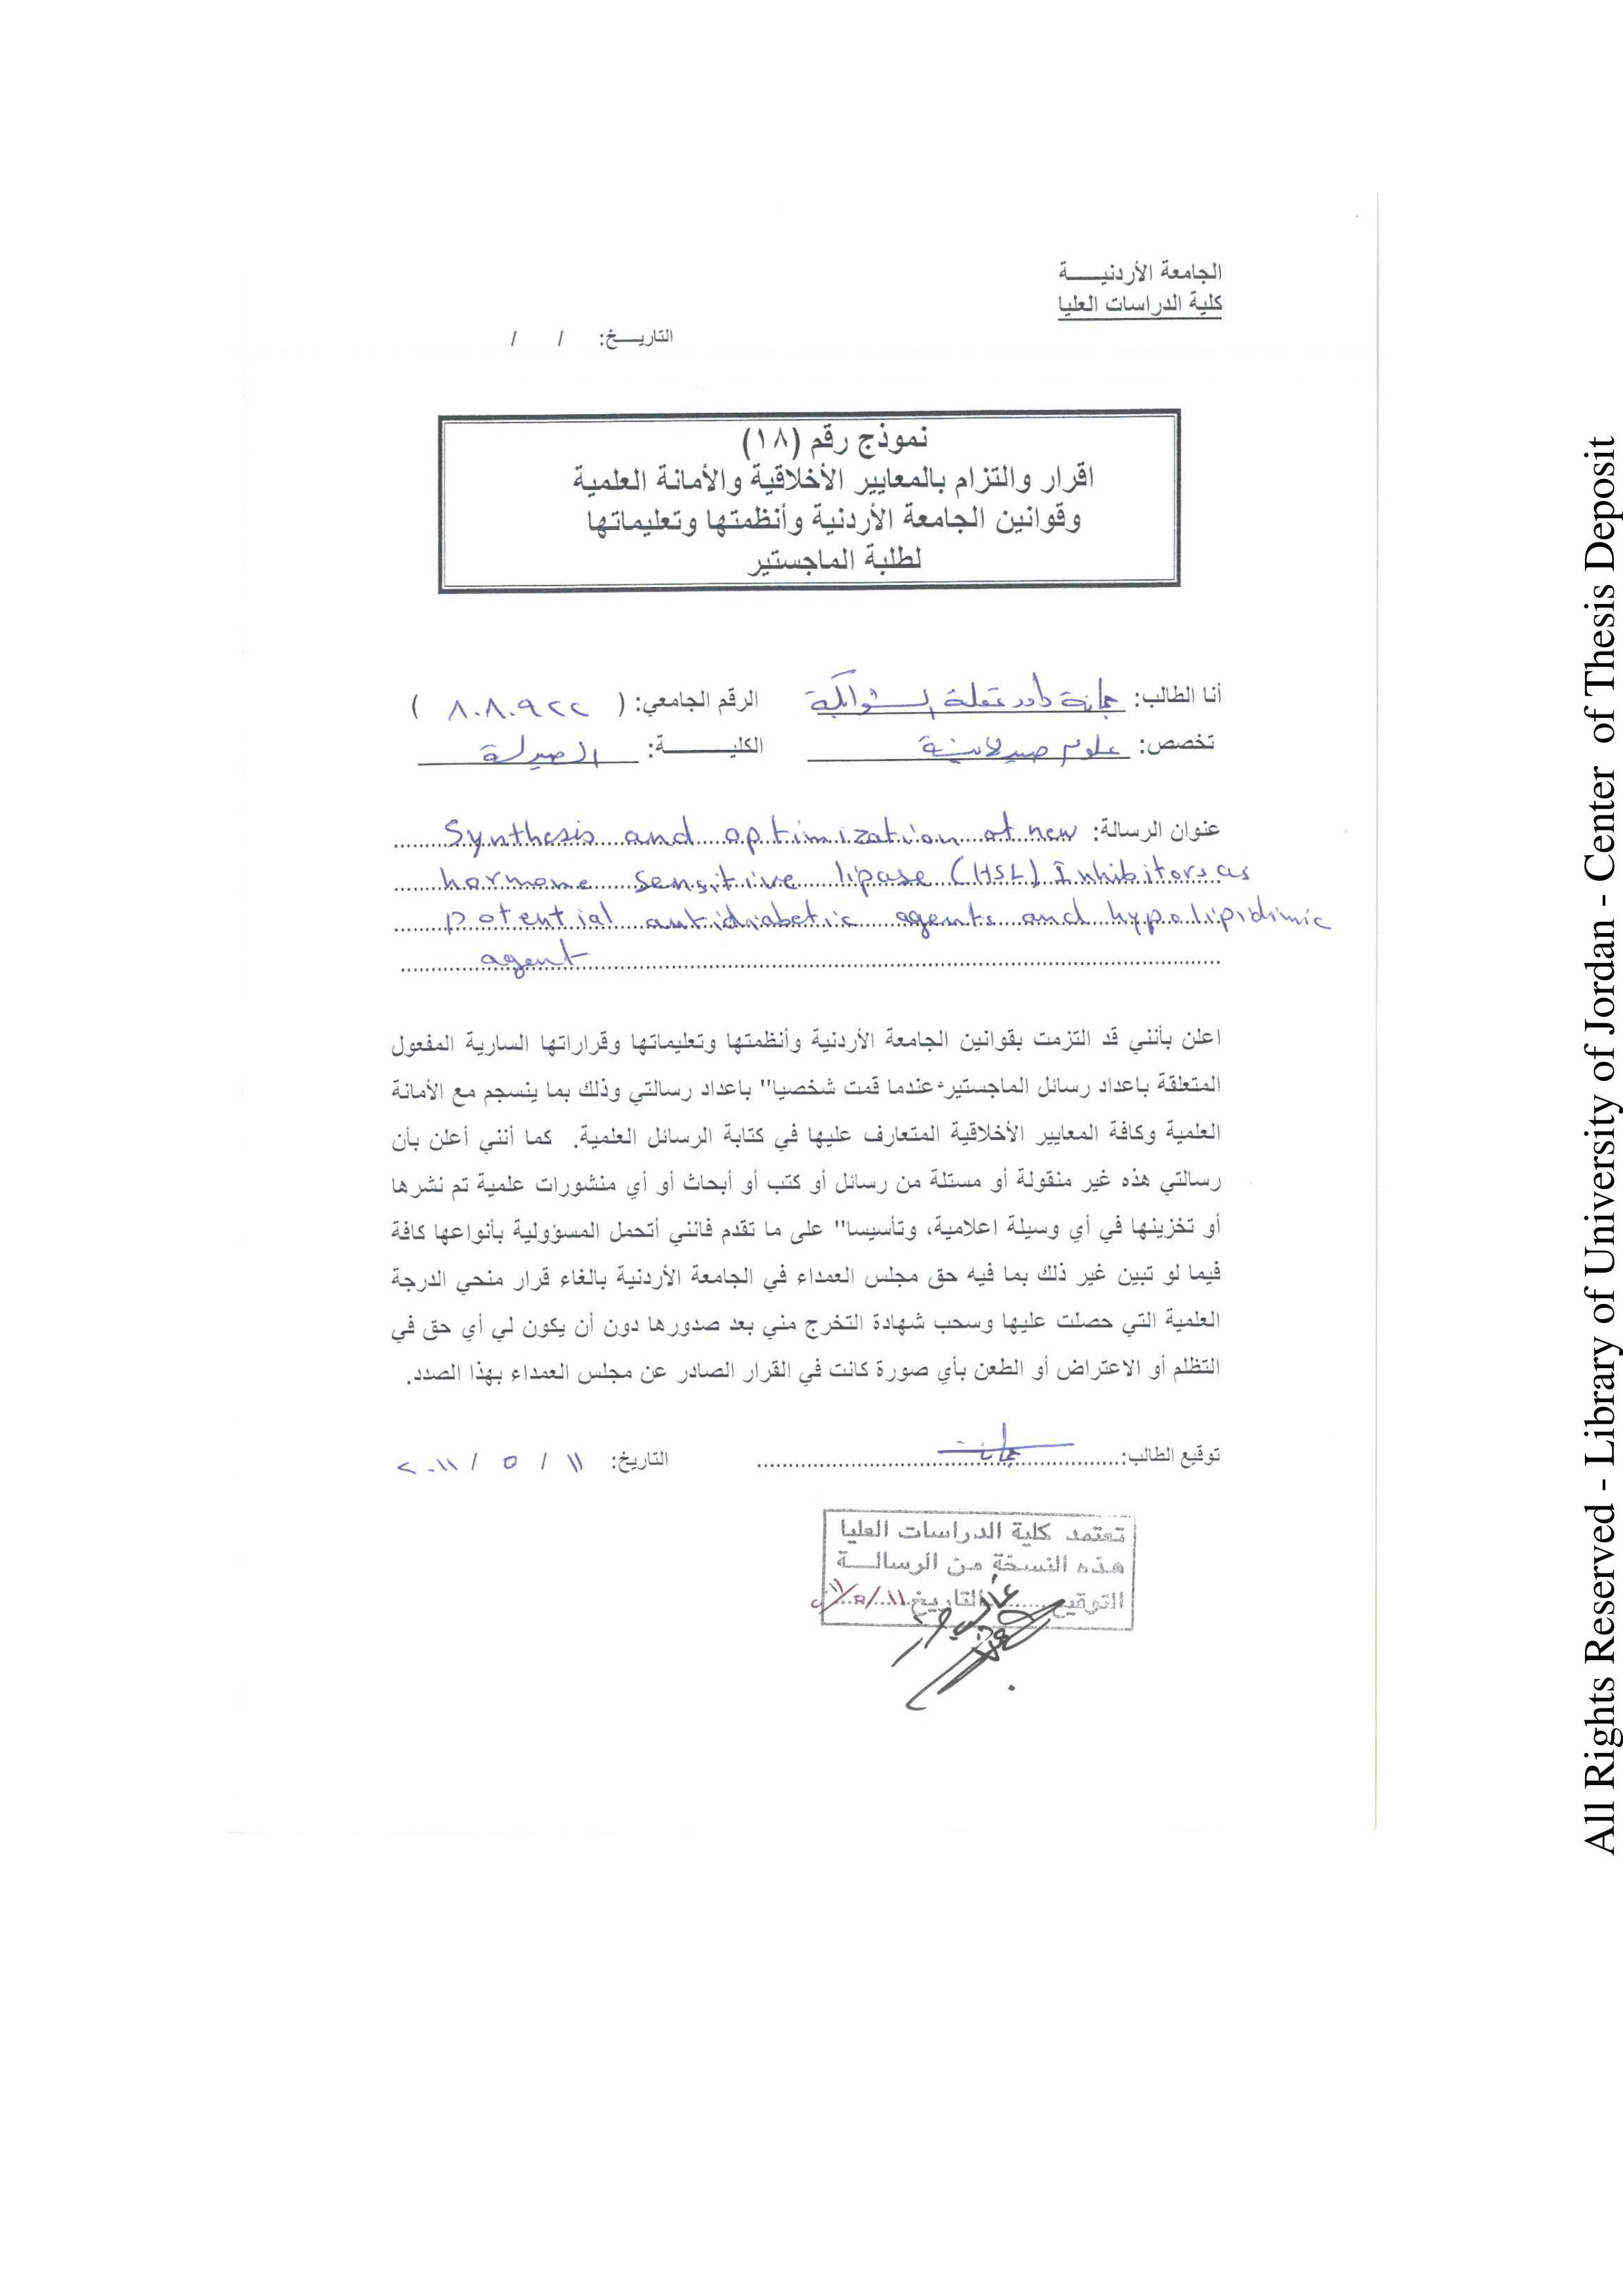 الجامعة الأردنيـــــة
كلية الدراسات العليا
التاريــــخ: / /
نموذج رقم (١٨)
اقرار والتزام بالمعايير الأخلاقية والأمانة العلمية
وقوانين الجامعة الأردنية وأنظمتها وتعليماتها
لطلبة الماجستير
أنا الطالب: جمانة داود الرقم الجامعي: ( ٨٠٨٠٩٢٢ )
تخصص: علوم صيدلانية الكليـــــــــة: الصيدلة
عنوان الرسالة: Synthesis and optimization of new
hormone sensitive lipase (HSL) Inhibitors as
potential antidiabetic agents and hypolipidimic
agent
اعلن بأنني قد التزمت بقوانين الجامعة الأردنية وأنظمتها وتعليماتها وقراراتها السارية المفعول
المتعلقة باعداد رسائل الماجستير عندما قمت شخصيا" باعداد رسالتي وذلك بما ينسجم مع الأمانة
العلمية وكافة المعايير الأخلاقية المتعارف عليها في كتابة الرسائل العلمية. كما أنني أعلن بأن
رسالتي هذه غير منقولة أو مستلة من رسائل أو كتب أو أبحاث أو أي منشورات علمية تم نشرها
أو تخزينها في أي وسيلة اعلامية، وتأسيسا" على ما تقدم فانني أتحمل المسؤولية بأنواعها كافة
فيما لو تبين غير ذلك بما فيه حق مجلس العمداء في الجامعة الأردنية بالغاء قرار منحي الدرجة
العلمية التي حصلت عليها وسحب شهادة التخرج مني بعد صدورها دون أن يكون لي أي حق في
التظلم أو الاعتراض أو الطعن بأي صورة كانت في القرار الصادر عن مجلس العمداء بهذا الصدد.
توقيع الطالب: جمانة التاريخ: ١١ / ٥ / ٢٠١١
تعتمد كلية الدراسات العليا
هذه النسخة من الرسالـــة
التوقيع.......التاريخ ١١/٥/١١
All Rights Reserved - Library of University of Jordan - Center of Thesis Deposit